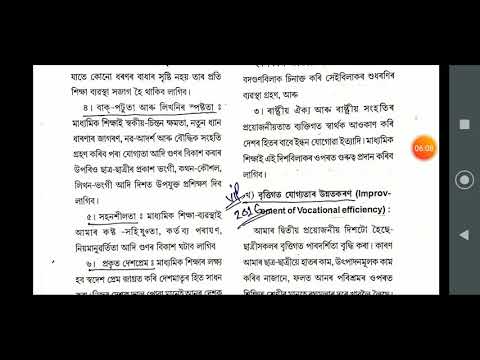 যাতে কোনো ধৰণৰ বাধাৰ সৃষ্টি নহয় তাৰ প্ৰতি
শিক্ষা ব্যৱস্থা সজাগ হৈ থাকিব লাগিব।
৪। বাক্-পটুতা আৰু লিখনিৰ স্পষ্টতা :
মাধ্যমিক শিক্ষাই স্বকীয়-চিন্তন ক্ষমতা, নতুন ধ্যান
ধাৰণাৰ জাগৰণ, নৱ-আদৰ্শ আৰু বৌদ্ধিক সংহতি
গ্ৰহণ কৰিব পৰা যোগ্যতা আদি গুণৰ বিকাশ কৰাৰ
উপৰিও ছাত্ৰ-ছাত্ৰীৰ প্ৰকাশ ভংগী, কথন-কৌশল,
লিখন-ভংগী আদি দিশত উপযুক্ত প্ৰশিক্ষণ দিব
লাগিব।
৫। সহনশীলতা : মাধ্যমিক শিক্ষা-ব্যৱস্থাই
আমাৰ কষ্ট -সহিষ্ণুতা, কৰ্তব্য পৰায়ণ,
নিয়মানুৱৰ্তিতা আদি গুণৰ বিকাশ ঘটাব লাগিব
৬। প্ৰকৃত দেশপ্ৰেম : মাধ্যমিক শিক্ষাৰ লক্ষ্য
হব স্বদেশ প্ৰেম জাগ্ৰত কৰি দেশমাতৃৰ হিত সাধন
বদগুণবিলাক চিনাক্ত কৰি সেইবিলাকৰ শুধৰণিৰ
ব্যৱস্থা গ্ৰহণ, আৰু
৩। ৰাষ্ট্ৰীয় ঐক্য আৰু ৰাষ্ট্ৰীয় সংহতিৰ
প্ৰয়োজনীয়তাত ব্যক্তিগত স্বাৰ্থক আওকাণ কৰি
দেশৰ হিতৰ বাবে ইন্ধন যোগোৱা ইত্যাদি। মাধ্যমিক
শিক্ষাই এই দিশবিলাকৰ ওপৰত গুৰুত্ব প্ৰদান কৰিব
লাগিব।
VIP
2016
খ) বৃত্তিগত যোগ্যতাৰ উন্নতকৰণ (Improv-
ement of Vocational efficiency) :
আমাৰ দ্বিতীয় প্ৰয়োজনীয় দিশটো হৈছে-
ছাত্ৰীসকলৰ বৃত্তিগত পাৰদৰ্শিতা বৃদ্ধি কৰা। কাৰণ
আমাৰ ছাত্ৰ-ছাত্ৰীয়ে হাতৰ কাম, উৎপাদনমূলক কাম
কৰিব নাজানে, ফলত আনৰ পৰিশ্ৰমৰ ওপৰত
06:08